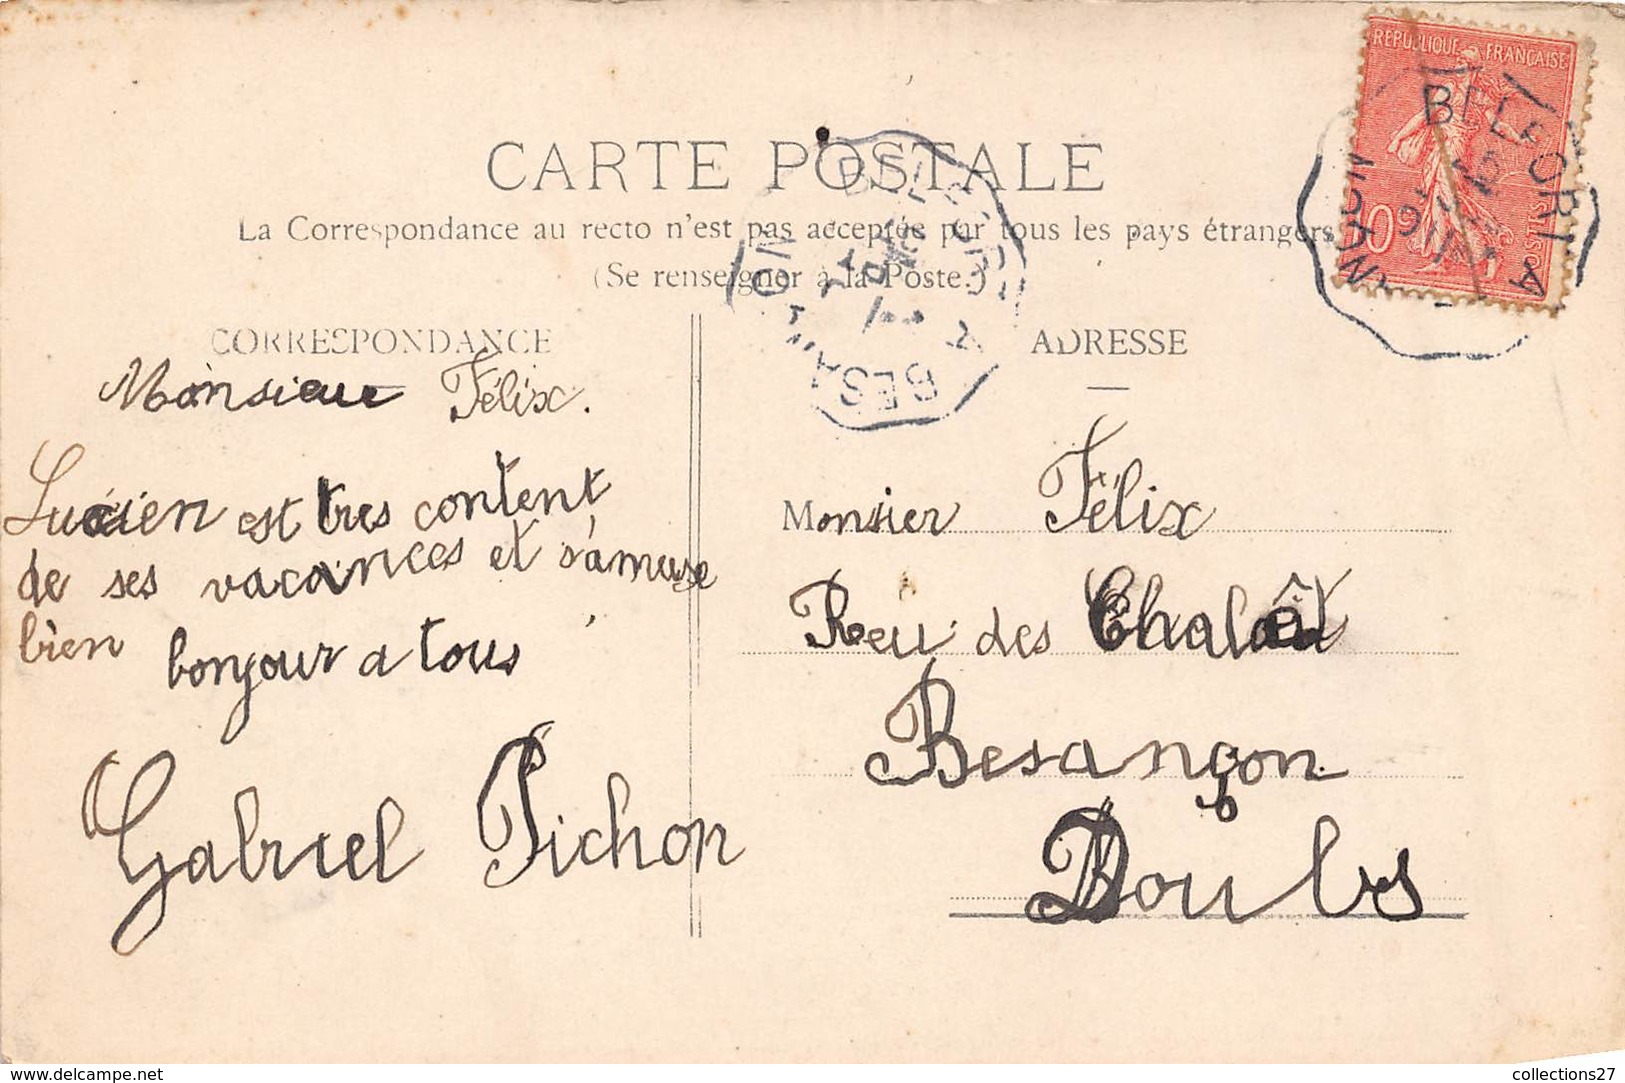 CARTE POSTALE
La Correspondance au recto n'est pas acceptée par tous les pays étrangers
(Se renseigner à la Poste.)
CORRESPONDANCE
Monsieur Félix.
Lucien est tres content
de ses vacances et s'amuse
bien bonjour a tous
Gabriel Pichon
ADRESSE
Monsier Félix
Reu des
Besançon
Doubs
REPUBLIQUE FRANÇAISE
POSTES
BELFORT A
BELFORT A BESANÇON
collections27